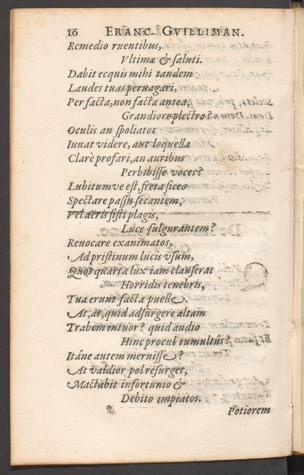 16 FRANC. GVILLIMAN.
Remedio ruentibus,
Vltimæ & saluti.
Dabit ecquis mihi tandem
Laudes tuas peruagari,
Per facta, non facta antea,
Grandiore plectro?
Oculis an spoliatos
Iuuat videre, aut loquellæ
Clarè profari, an auribus
Perbibisse voces?
Lubitum ve est, freta sicco
Spectare passu secantem,
Vel aëris sisti plagis,
Luce fulgurantem?
Reuocare exanimatos,
Ad pristinum lucis vsum,
Quos quarta lux iam clauserat
Horridis tenebris,
Tua erunt facta puellæ.
At, at, quid adsurgere altam
Trabem intuor? quid audio
Hinc procul tumultus?
Itáne autem meruisse?
At valdior pol resurget,
Mactabit infortunio &
Debito impiatos.
Potiorem